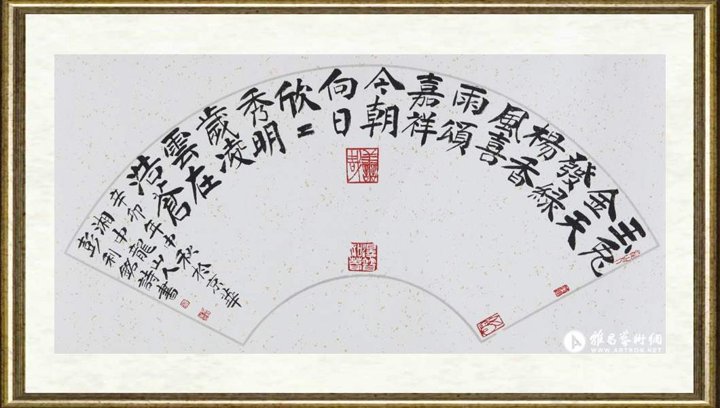 玉兔
金天
發綠
楊香
風喜
雨頌
嘉祥
今朝
向日
欣〻
秀明
歲凌
雲左
浩蒼
辛卯年中秋於京華
湘中龍山人
彭利銘詩書
雅昌藝術網
WWW.ARTRON.NET